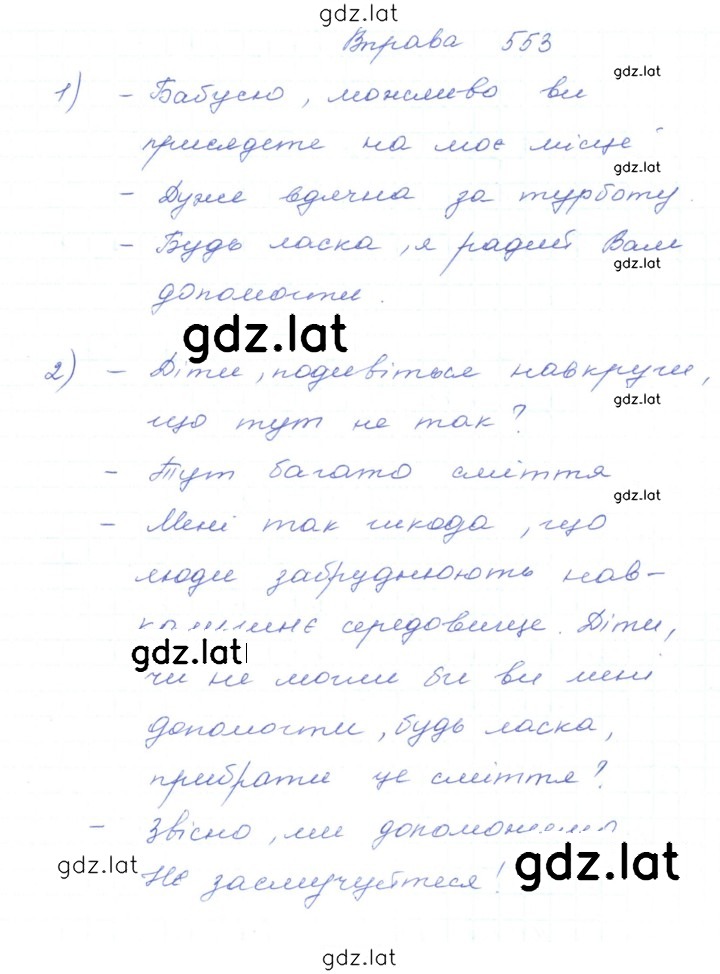 gdz.lat
Вправа 553
gdz.lat
1) - Бабусю, можливо ви
присядете на моє місце
gdz.lat
- Дуже вдячна за турботу.
- Будь ласка, я радий Вам
gdz.lat
допомогти.
gdz.lat
2) - Діти, подивіться навкруги,
gdz.lat
що тут не так?
- Тут багато сміття
gdz.lat
- Мені так шкода, що
люди забруднюють нав-
середовище. Діти,
gdz.lat
чи не могли би ви мені
допомогти, будь ласка,
прибрати це сміття?
- Звісно, ми
gdz.lat
gdz.lat
Не засмучуйтеся!
gdz.lat